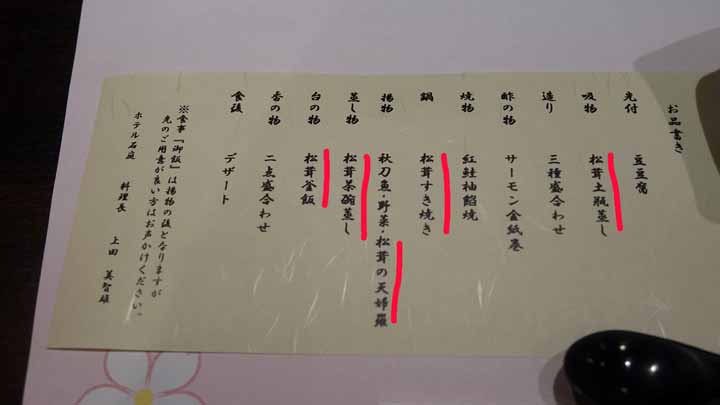 お品書き
先付 豆豆腐
吸物 松茸土瓶蒸し
造り 三種盛合わせ
酢の物 サーモン金紙巻
焼物 紅鮭柚餡焼
鍋 松茸すき焼き
揚物 秋刀魚・野菜・松茸の天婦羅
蒸し物 松茸茶碗蒸し
台の物 松茸釜飯
香の物 二点盛合わせ
食後 デザート
※食事「御飯」は揚物の後となりますが
先のご用意が良い方はお声かけください。
ホテル石庭 料理長 上田 美智雄